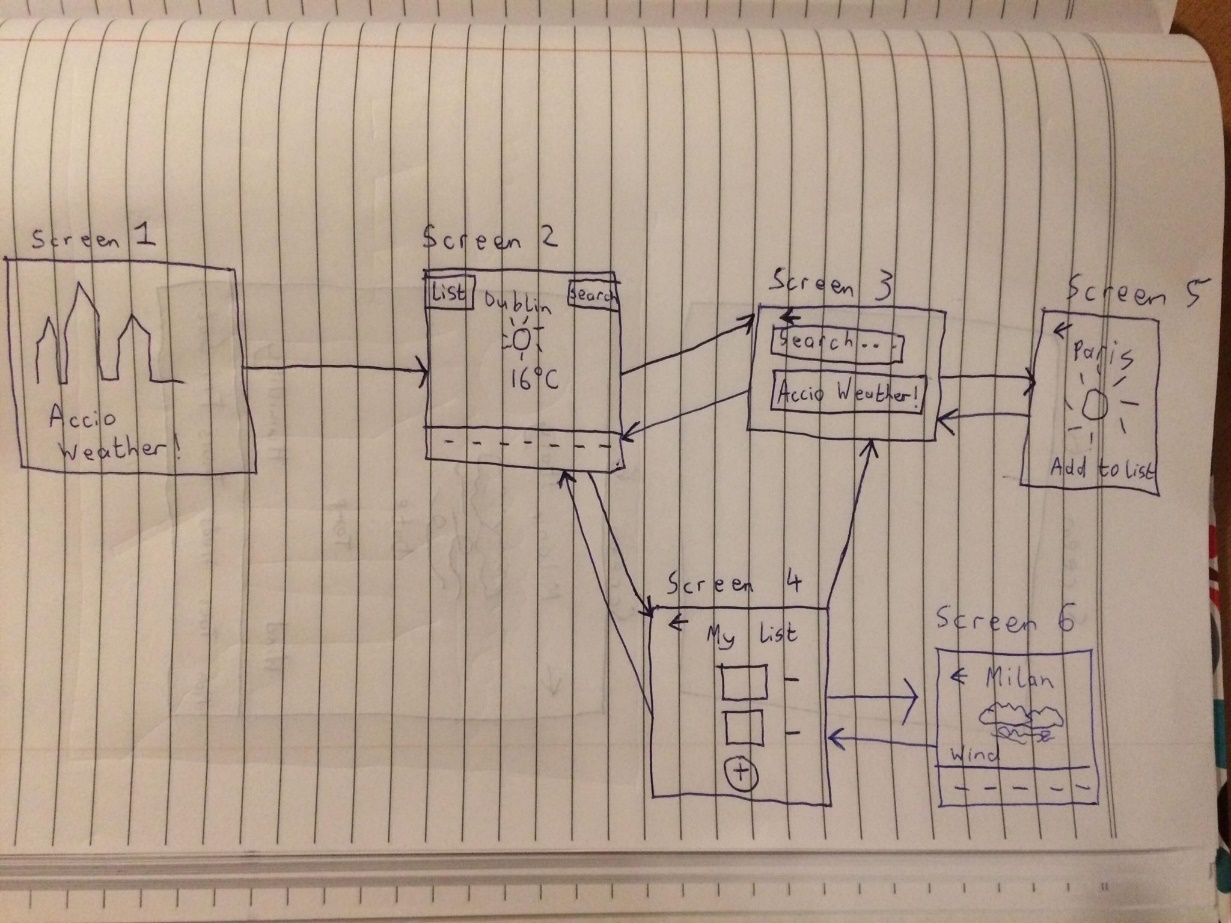 Screen 1
Accio
Weather!
Screen 2
List
Search
Dublin
16°C
Screen 3
Search...
Accio Weather!
Screen 5
Paris
Add to list
Screen 4
My list
Screen 6
Milan
Wind